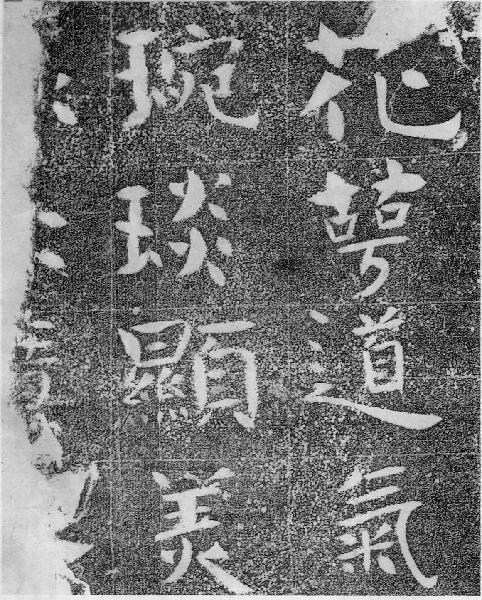 花萼道氣
琬琰顯美